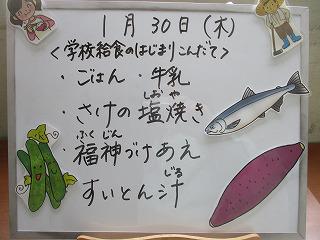 1月30日(木)
<学校給食のはじまりこんだて>
・ごはん・牛乳
しおや
・さけの塩焼き
ふくじん
・福神づけあえ
じる
すいとん汁